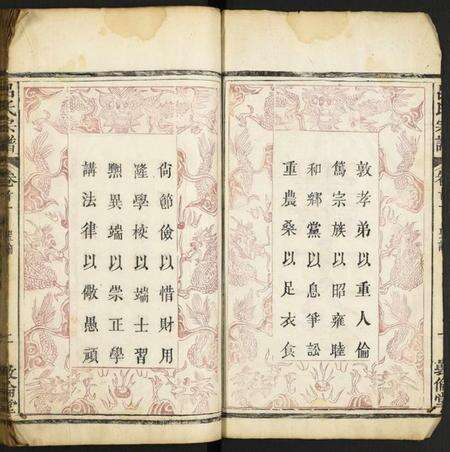 敦孝弟以重人倫
篤宗族以昭雍睦
和鄉黨以息爭訟
重農桑以足衣食
尚節儉以惜財用
隆學校以端士習
黜異端以崇正學
講法律以儆愚頑
呂氏宗譜
卷首